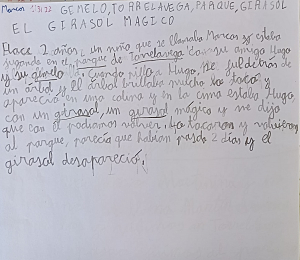 Marcos 1/3/22 GEMELO, TORRELAVEGA, PARQUE, GIRASOL
EL GIRASOL MAGICO
Hace 2 años, un niño que se llamaba Marcos y estaba
jugando en el parque de Torrelavega con su amigo Hugo
y su gemelo. Cuando pilla a Hugo, se fue detrás de
un árbol y el árbol brillaba mucho lo tocó y
apareció en una colina y en la cima estaba Hugo
con un girasol, un girasol mágico y me dijo
que con el podíamos volver. Lo tocaron y volvieron
al parque, parecía que habían pasado 2 días y el
girasol desapareció.